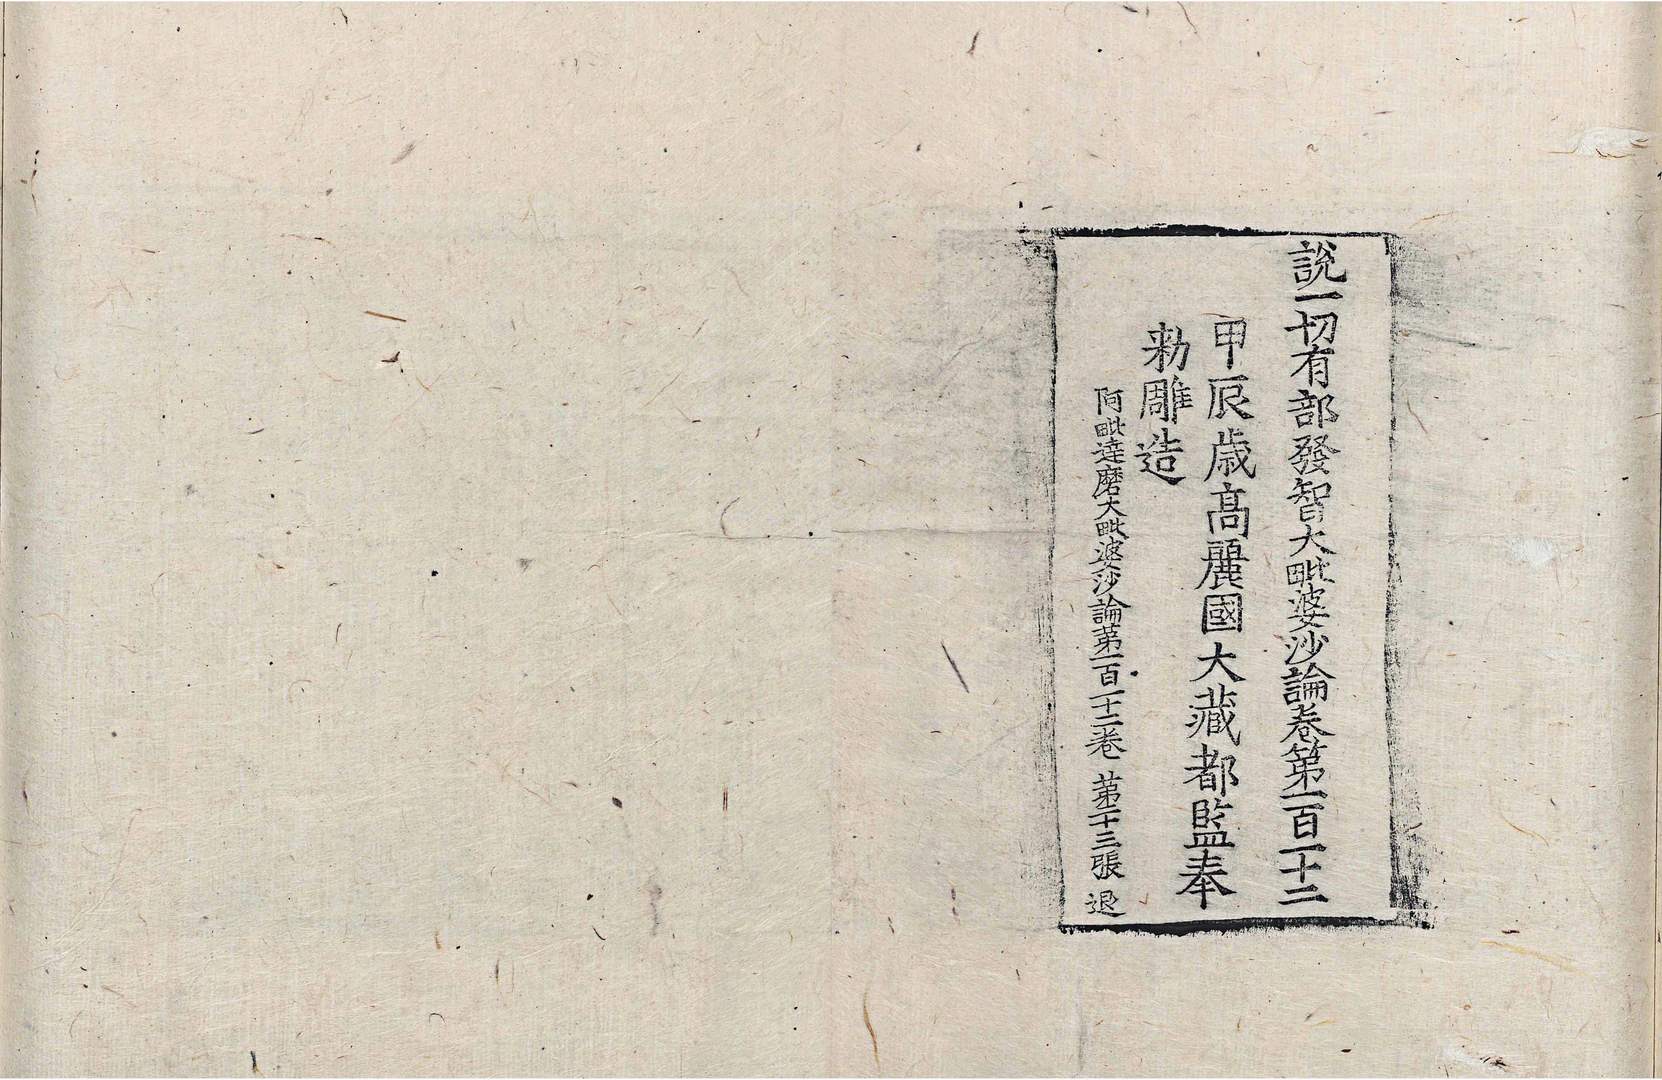 說一切有部發智大毗婆沙論卷第一百一十二
甲辰歲高麗國大藏都監奉
勑雕造
阿毗達磨大毗婆沙論苐一百一十二卷 苐二十三張 退